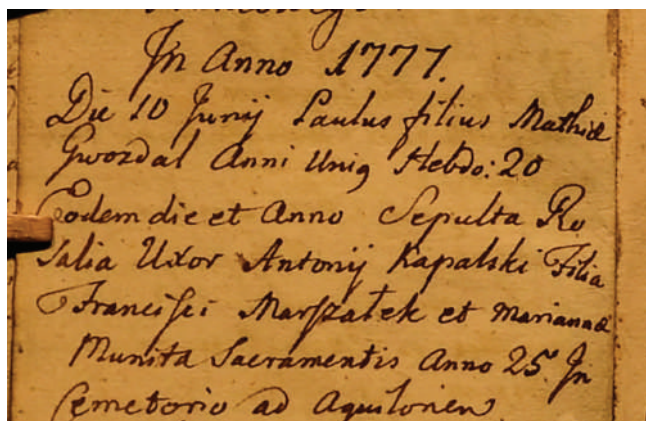 In Anno 1777.
Die 10 Junij Paulus filius Mathiæ
Gwozdal Anni Uniq Hebdo: 20
Eodem die et Anno Sepulta Ro
salia Uxor Antonij Kapalski Filia
Francisci Marszałek et Mariannæ
Munita Sacramentis Anno 25. In
Cemetorio ad Aquilonem